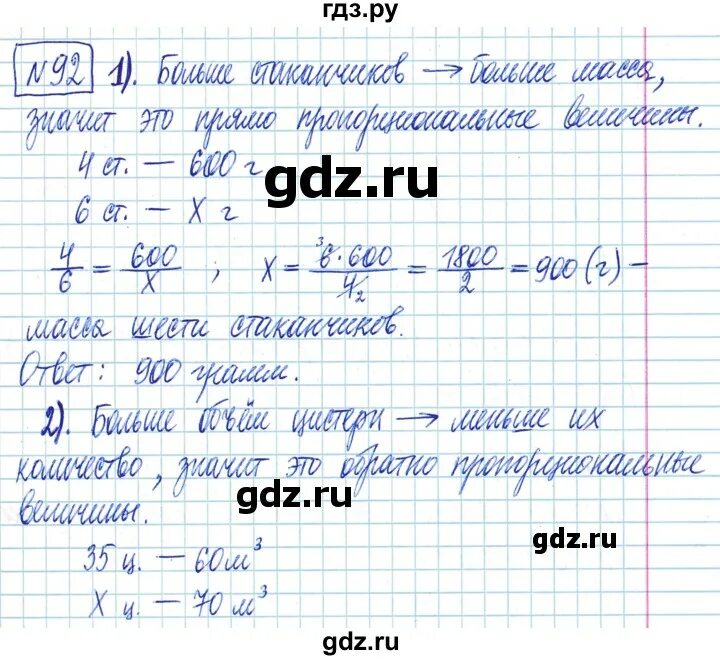 гдз.ру
№92 1). Больше стаканчиков → больше масса,
значит это прямо пропорциональные величины.
4 ст. — 600 г
gdz.ru
6 ст. — X г
4/6 = 600/X ; X = 6·600/4 = 1800/2 = 900 (г) —
3 2
масса шести стаканчиков.
gdz.ru
Ответ: 900 грамм.
2). Больше объём цистерн → меньше их
количество, значит это обратно пропорциональные
gdz.ru
величины.
gdz.ru
35 ц. — 60 м³
X ц. — 70 м³
gdz.ru